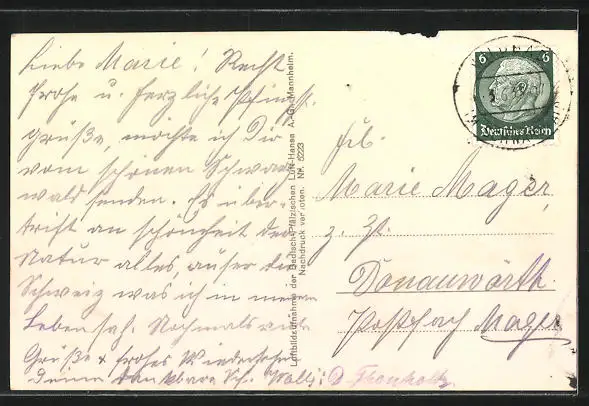 Liebe Marie! Recht
frohe u. herzliche Pfingst-
grüße, möchte ich Dir
vom schönen Schwarz-
wald senden. Es über-
trifft an Schönheit der
Natur alles, außer die
Schweiz was ich in meinem
Leben sah. Nochmals viele
Grüße & frohes Wiedersehen
Deine dankbare Sch. Wally
Luftbildaufnahme der Badisch-Pfälzischen Luft-Hansa A.-G. Mannheim.
Nachdruck verboten. Nr. 6223
6 6
Deutsches Reich
Frl.
Marie Mager,
z. Zt.
Donauwörth
Postfach Mager